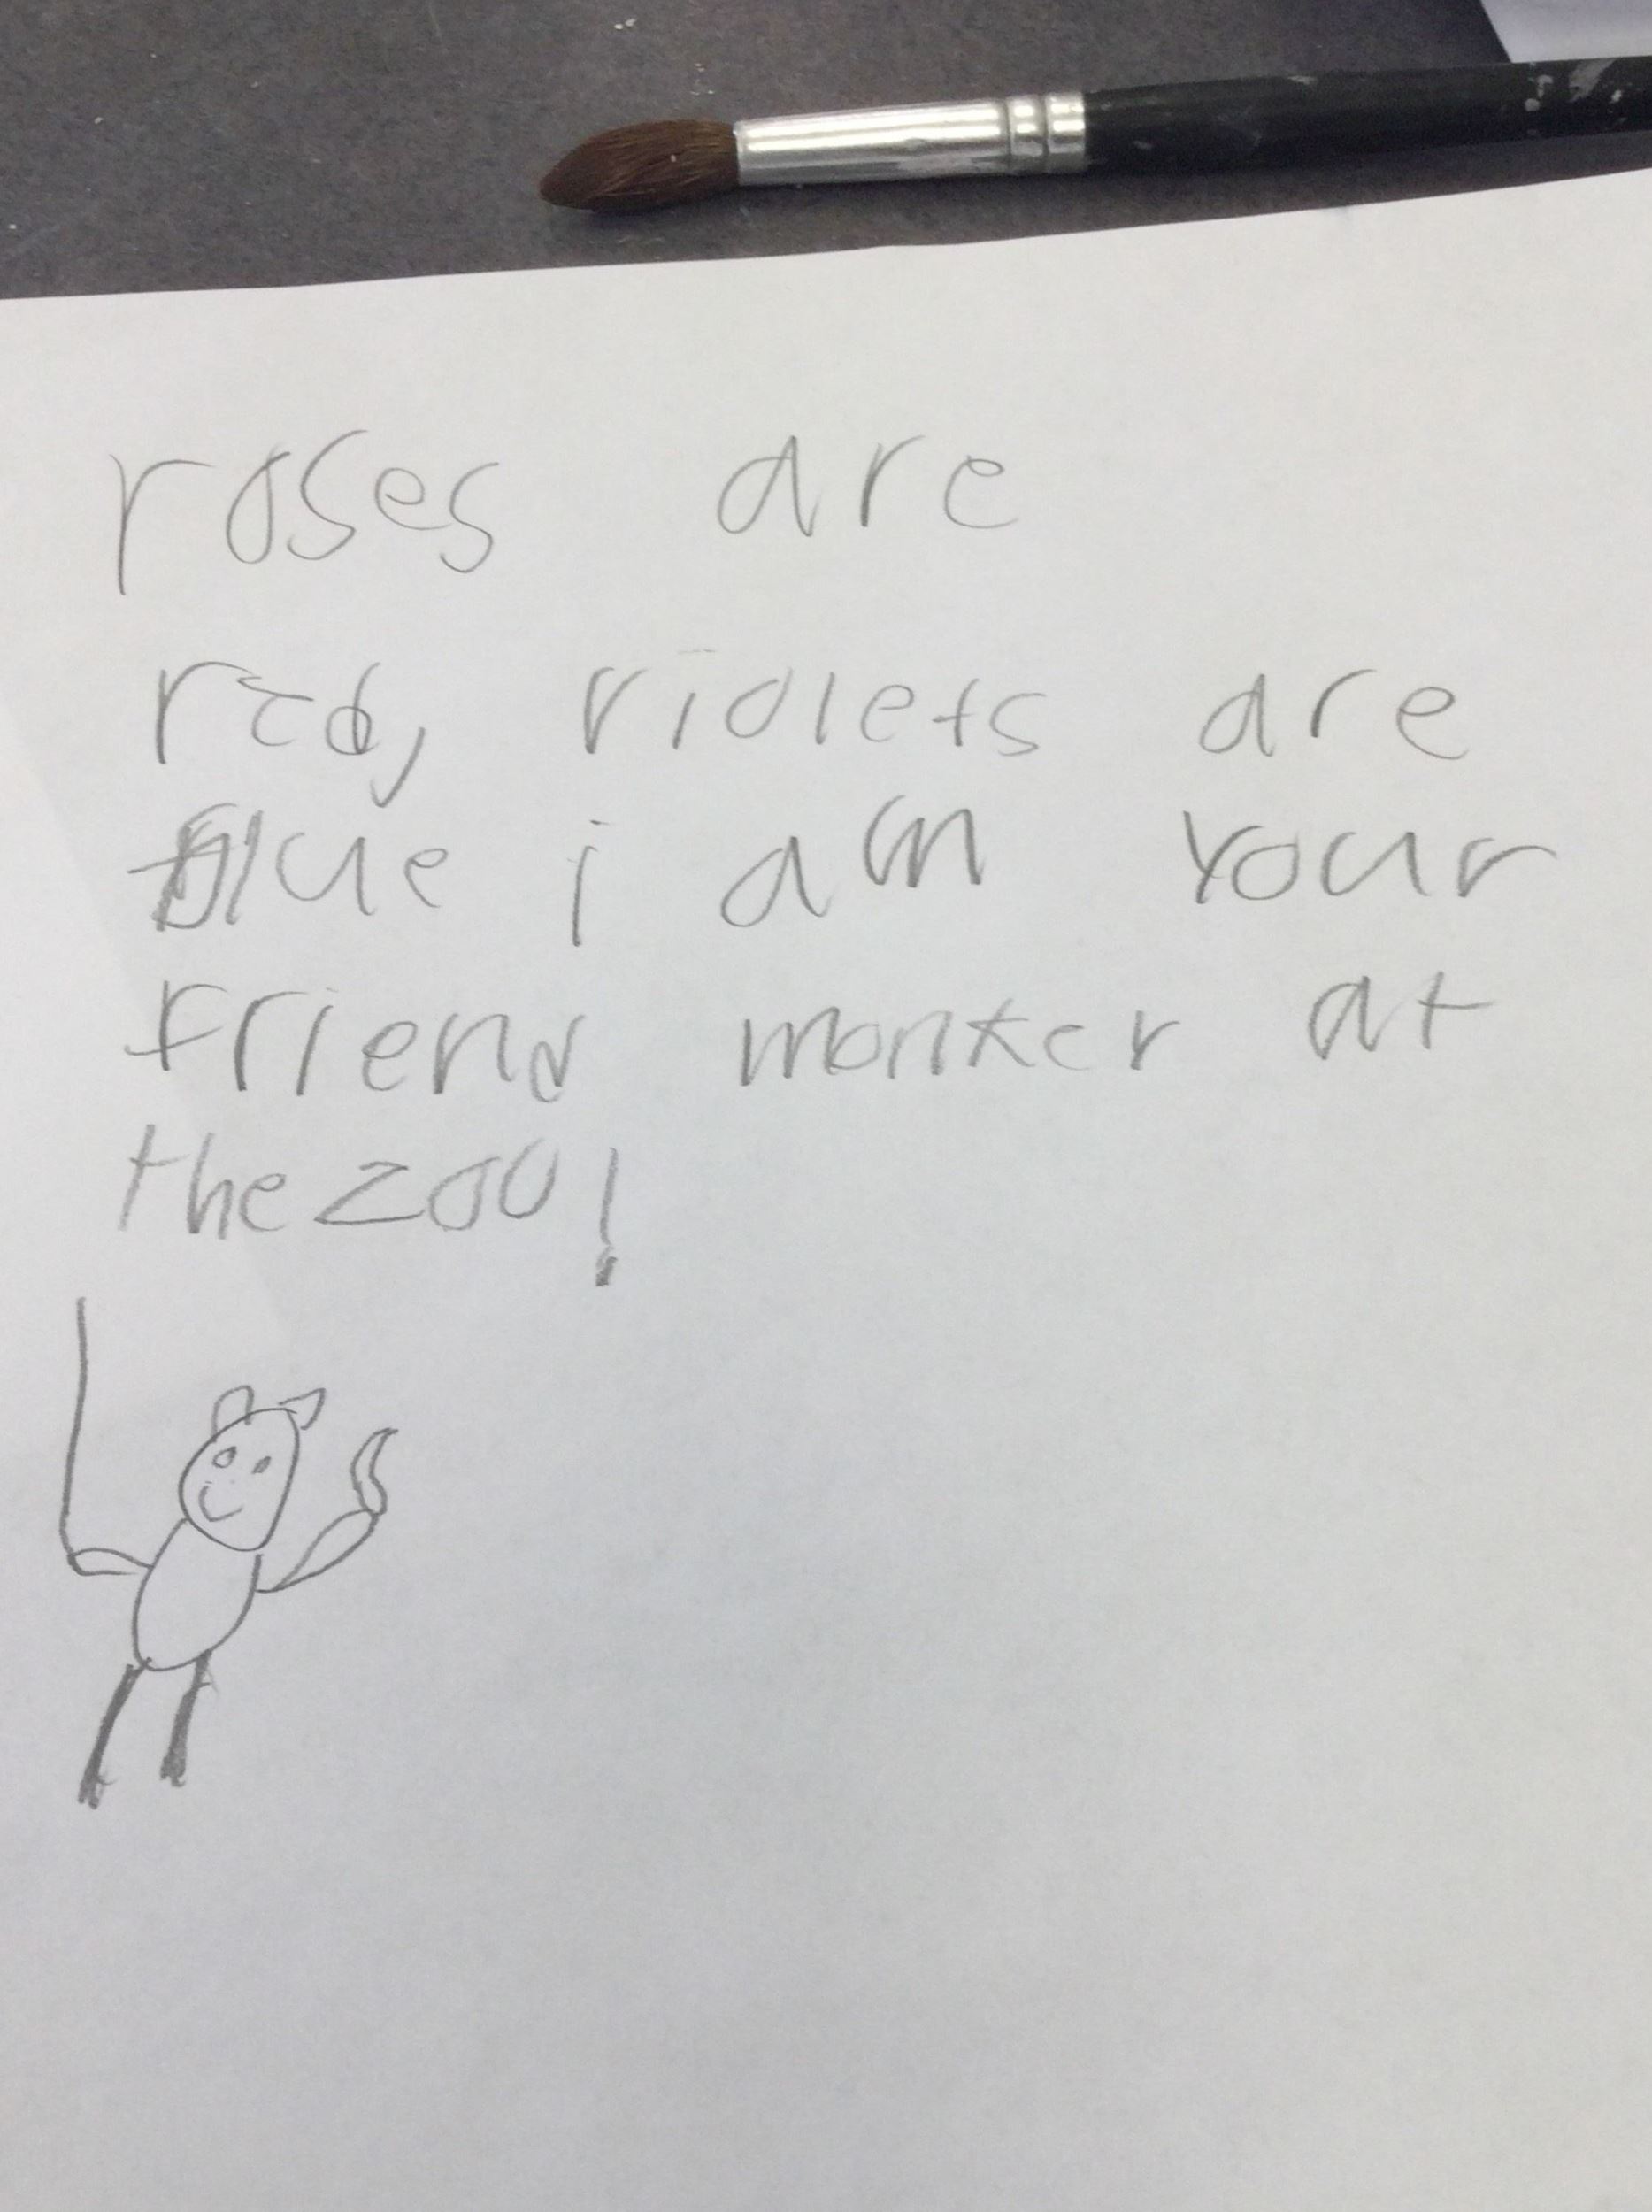 roses are
red, violets are
blue i am your
friend monkey at
the zoo!